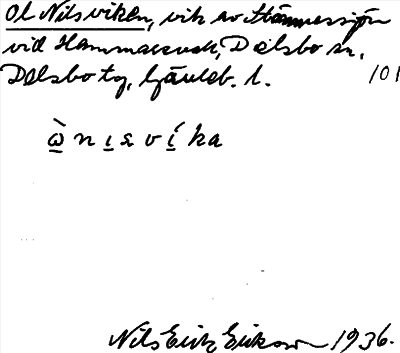 Ol Nilsviken, vik av Hammarsjön
vid Hammarsvik, Delsbo sn.
Delsbo tg, Gävleb. l. 101
ὼ n ı s v í k a
Nils Erik Erikson 1936.